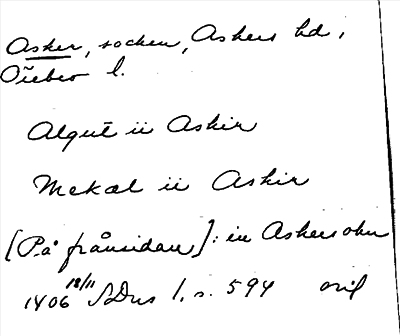 Asker, socken, Askers hd,
Örebro l.
Algut ii Askir
Mekæl ii Askir
[På frånsidan]: in Askers
1406 18/11 SDns 1, s. 594 orig